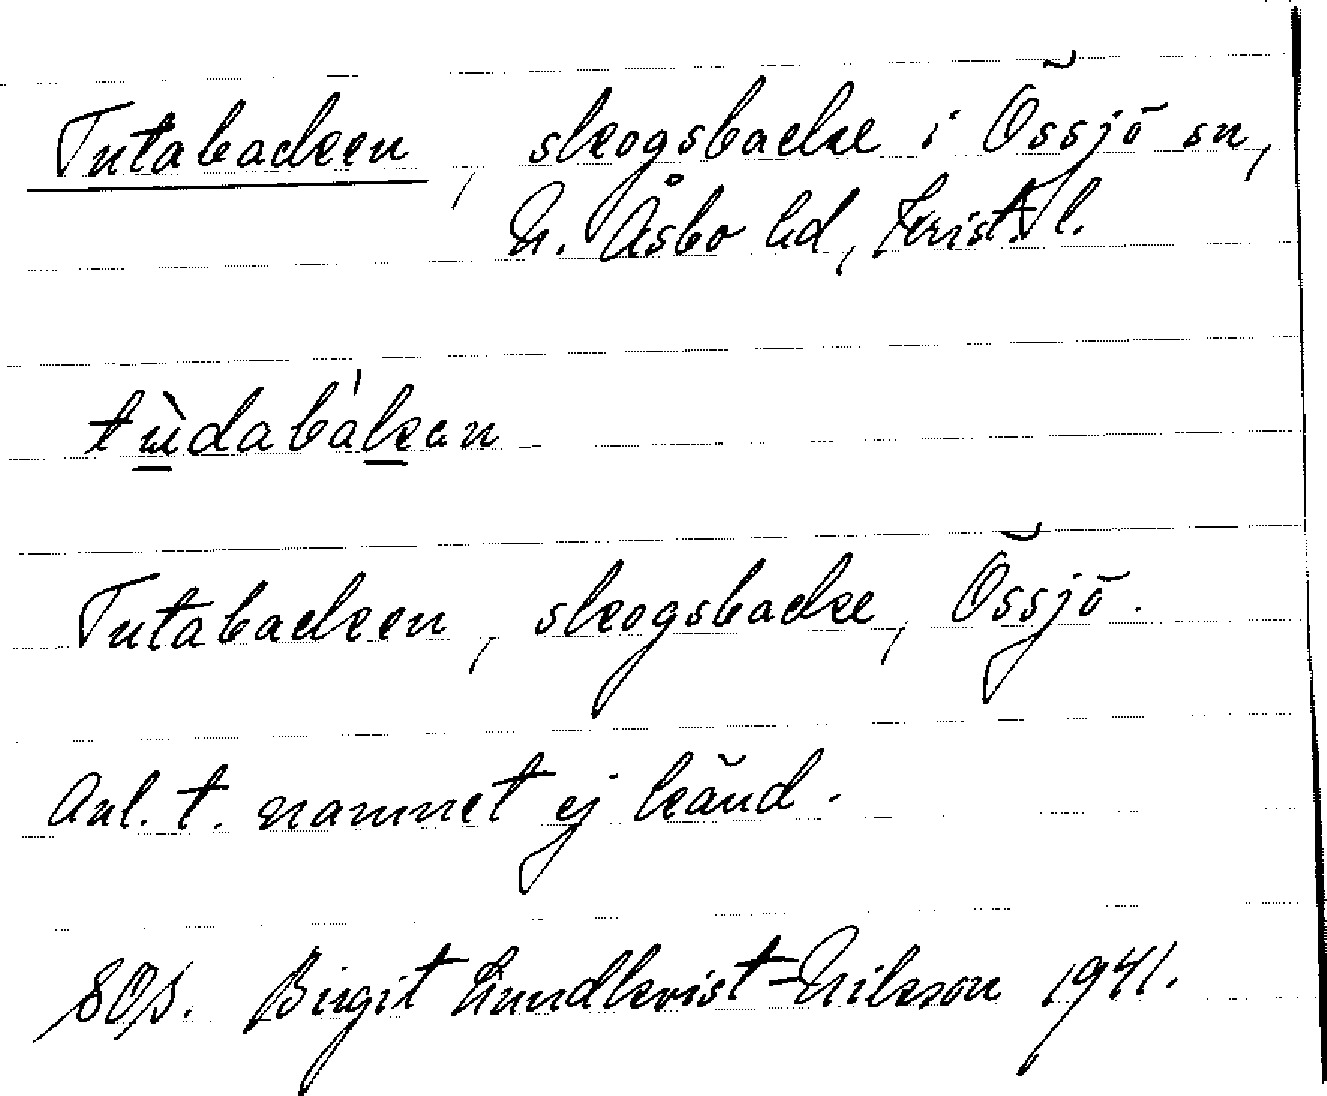 Tutabacken, skogsbacke i Össjö sn,
N. Åsbo hd, Krist. l.
tùdabàkan
Tutabacken, skogsbacke, Össjö.
Anl. t. namnet ej känd.
SOS. Birgit Lundkvist-Nilsson 1941.